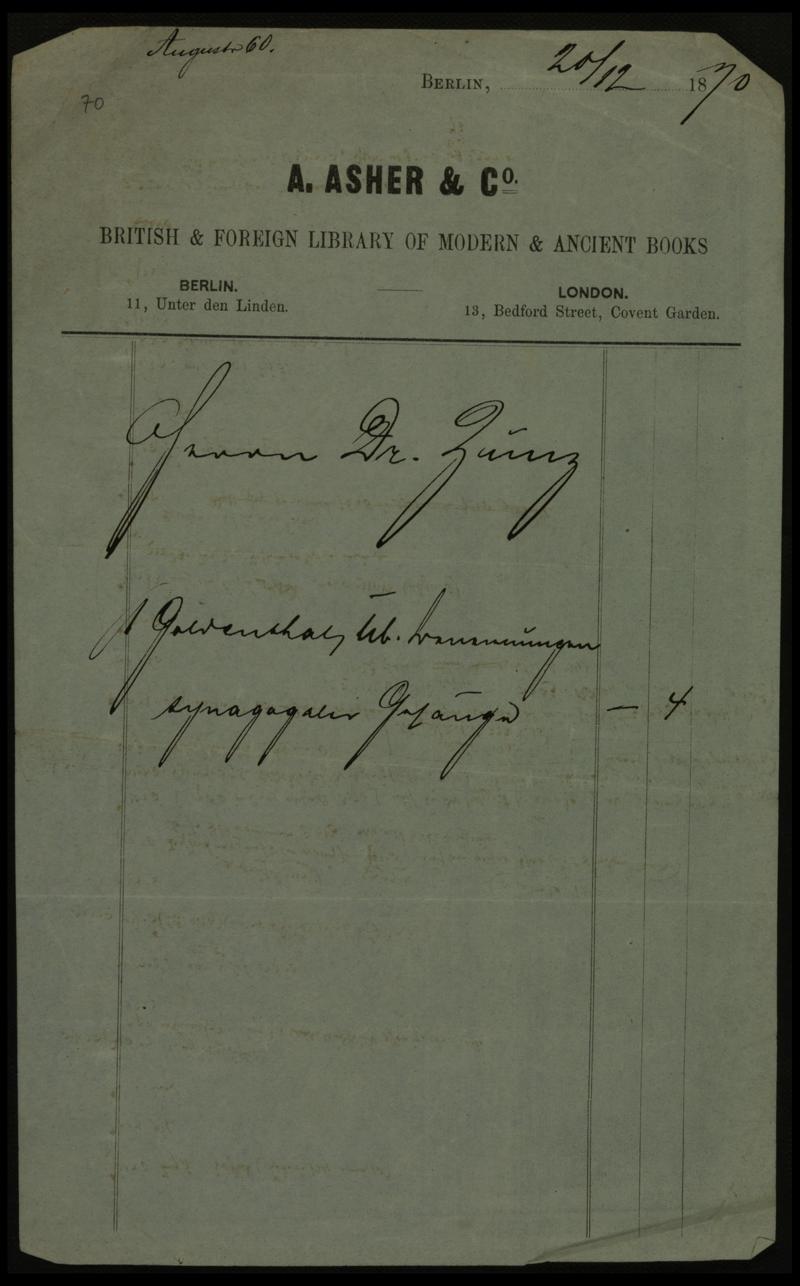 Auguststr 60.
BERLIN, 20/12 1870
70
A. ASHER & Co.
BRITISH & FOREIGN LIBRARY OF MODERN & ANCIENT BOOKS
BERLIN.
11, Unter den Linden.
LONDON.
13, Bedford Street, Covent Garden.
Herrn Dr. Zunz
1 Goldenthal, üb. Benennungen
synagogaler Gesänge — 4